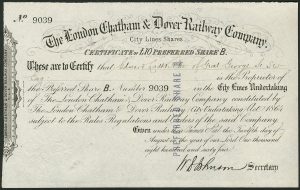 No 9039
The London Chatham & Dover Railway Company.
City Lines Shares
CERTIFICATE of £10 PREFERRED SHARE B.
These are to Certify that of Great George St
is the Proprietor of
the Preferred Share B. Number 9039 in the City Lines Undertaking
of The London Chatham & Dover Railway Company constituted by
The London Chatham & Dover Railway (City Undertaking) Act 1864
subject to the Rules Regulations and Orders of the said Company
Given under the Common Seal the day of
in the year of our Lord One thousand
eight hundred and sixty four
Secretary
PREFERRED SHARE